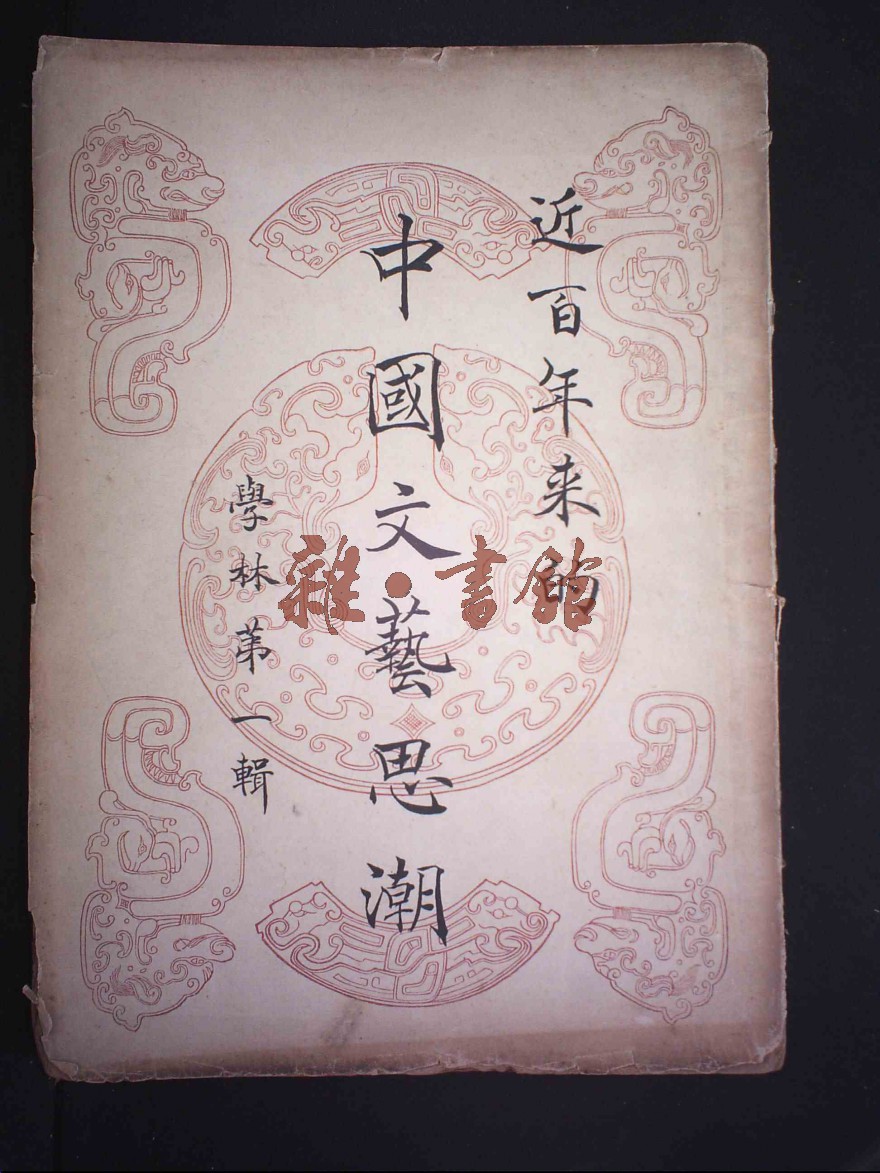 近百年来的
中國文藝思潮
學林苐一輯
雜·書館